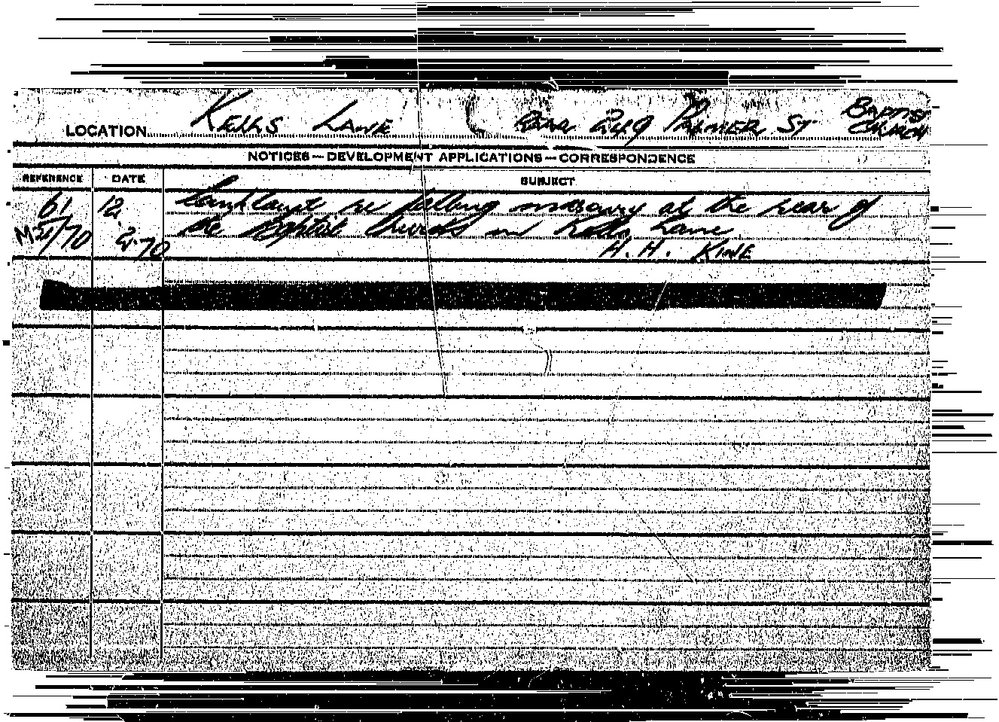 KELLS LANE ( REAR 249 PALMER ST BAPTIST
LOCATION CHURCH
NOTICES — DEVELOPMENT APPLICATIONS — CORRESPONDENCE
REFERENCE DATE SUBJECT
61 12 Complaint re falling masonry at the rear of
70 2.70 the Baptist Church in Kells Lane
H. H. KINE